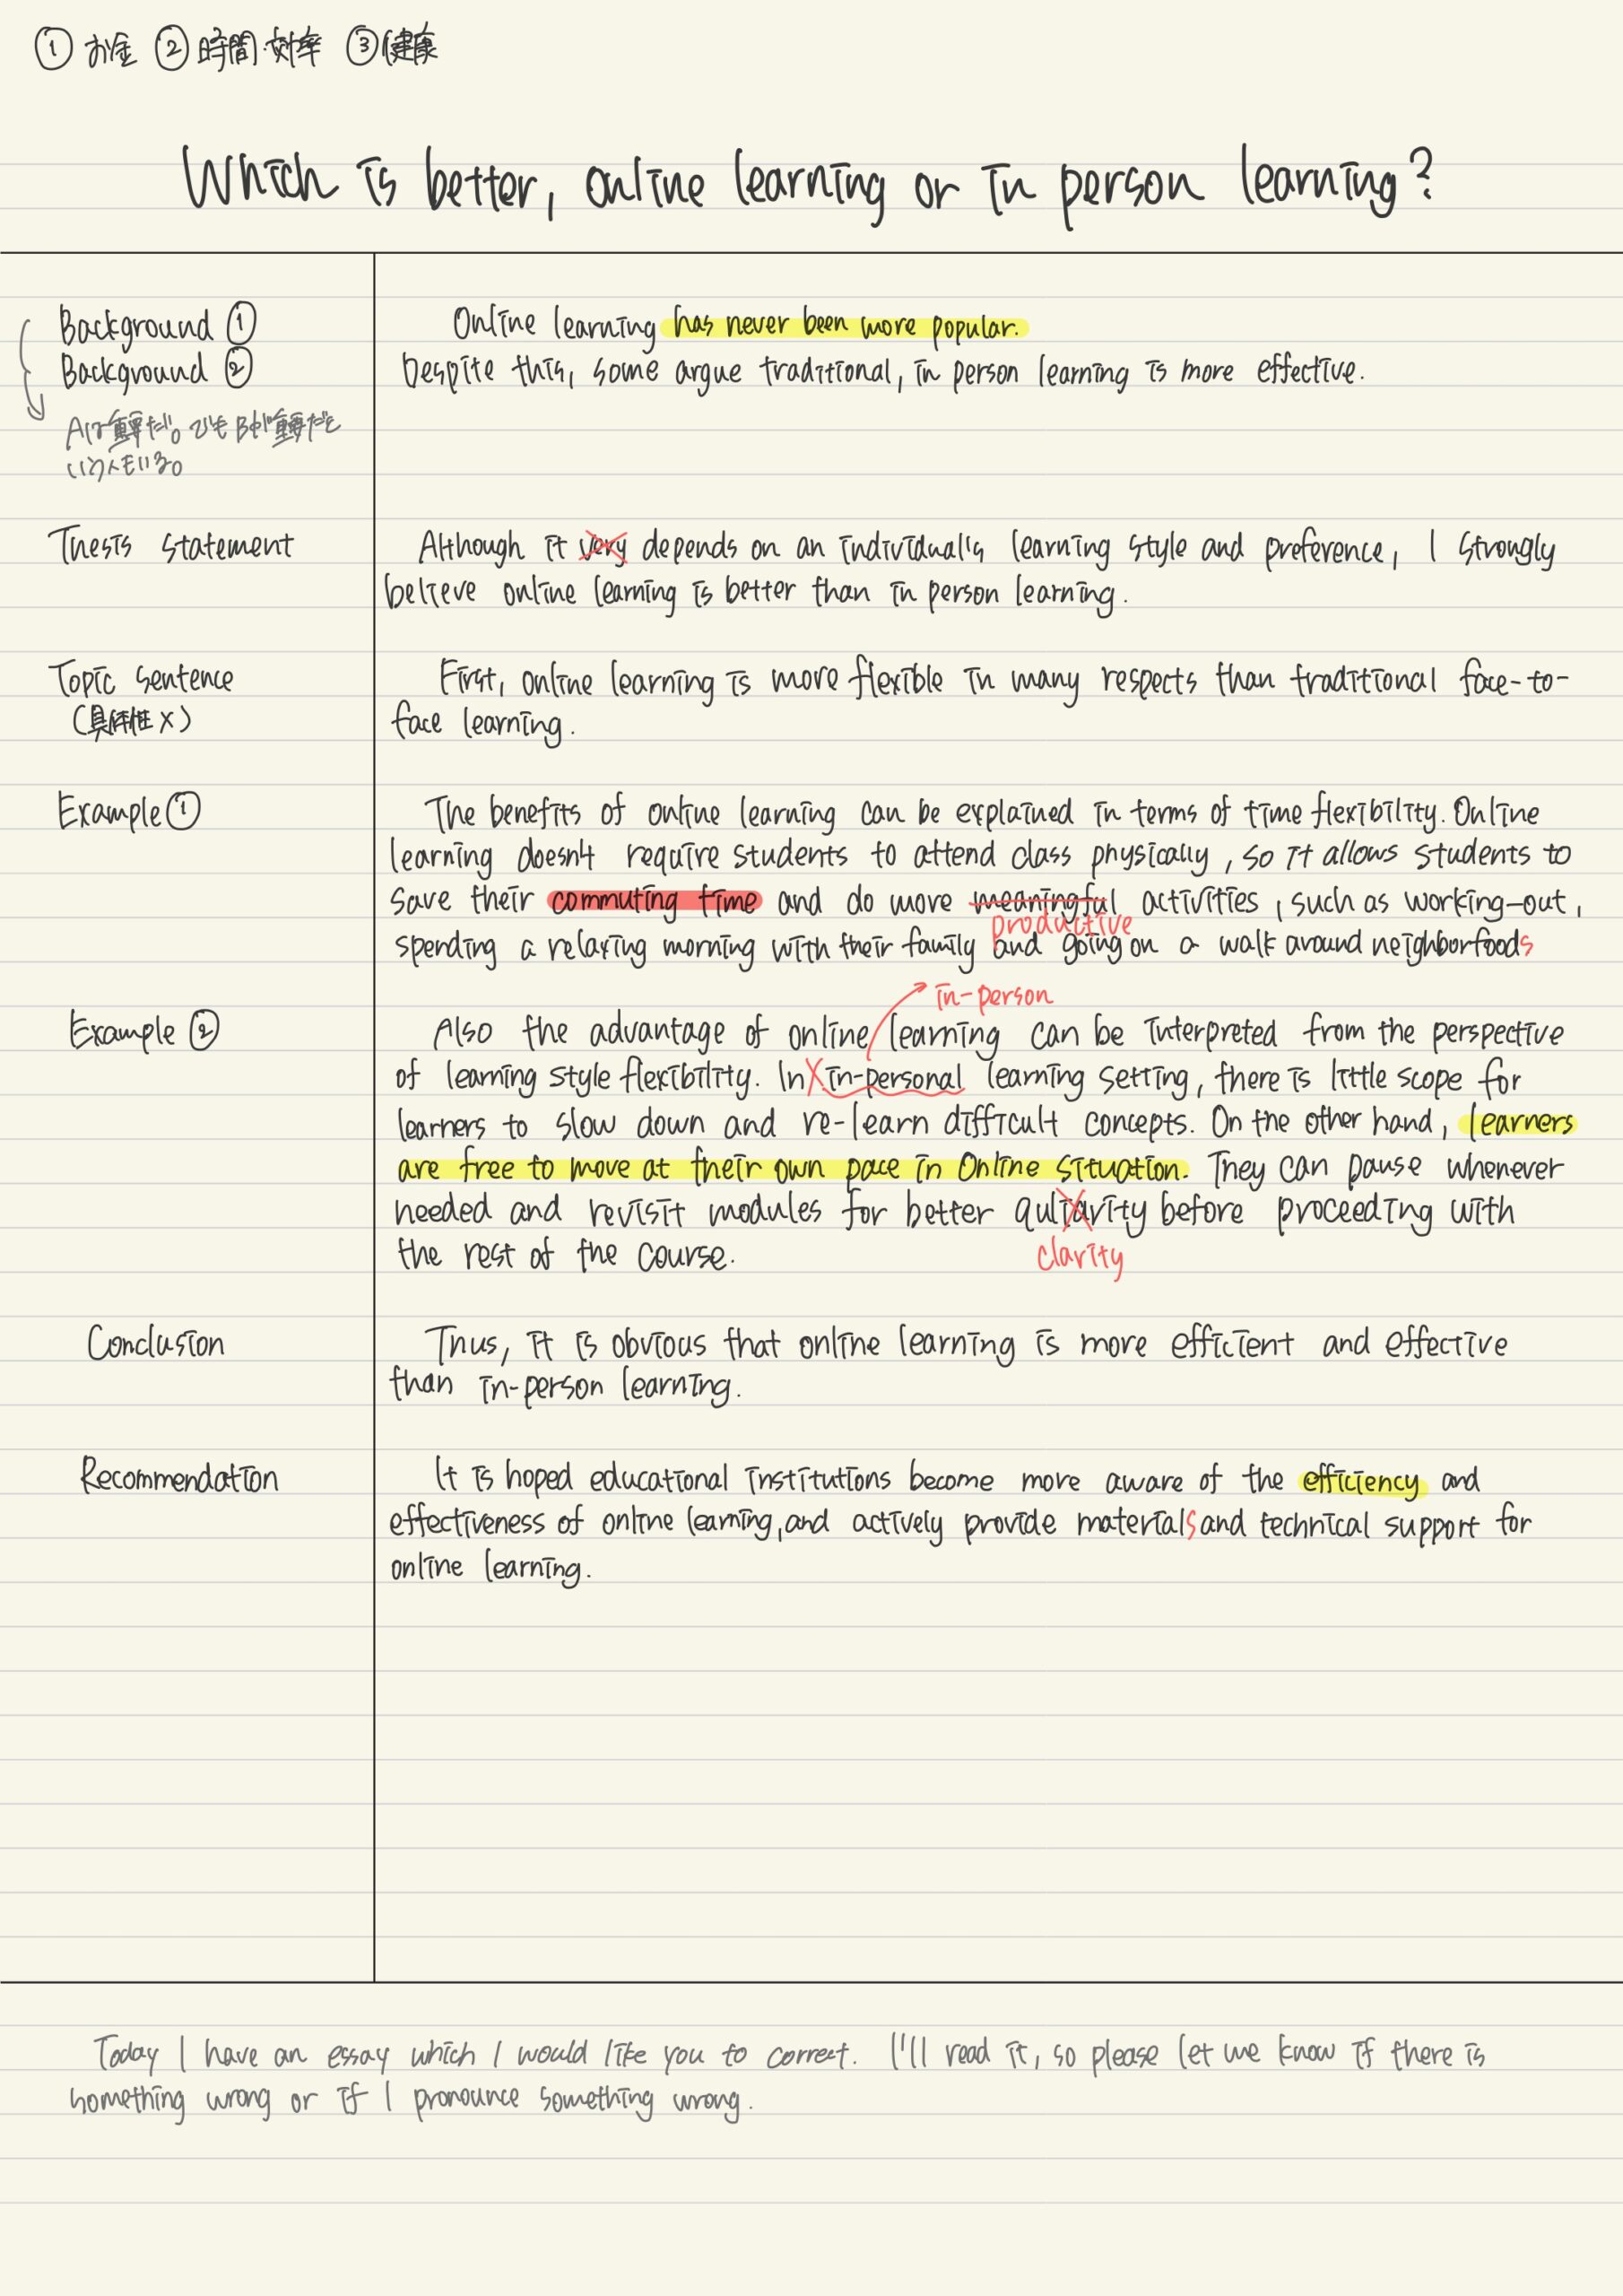 ① お金 ② 時間・効率 ③ 健康
Which is better, online learning or in person learning?
Background ①
Background ②
Aは重要だ。でもBが重要だと
いう人もいる。
Online learning has never been more popular.
Despite this, some argue traditional, in person learning is more effective.
Thesis statement
Although it very depends on an individual's learning style and preference, I strongly
believe online learning is better than in person learning.
Topic sentence
(具体性×)
First, online learning is more flexible in many respects than traditional face-to-
face learning.
Example ①
The benefits of online learning can be explained in terms of time flexibility. Online
learning doesn't require students to attend class physically, so it allows students to
save their commuting time and do more meaningful activities, such as working-out,
productive
spending a relaxing morning with their family and going on a walk around neighborfoods
in-person
Example ②
Also the advantage of online learning can be interpreted from the perspective
of learning style flexibility. In in-personal learning setting, there is little scope for
learners to slow down and re-learn difficult concepts. On the other hand, learners
are free to move at their own pace in Online situation. They can pause whenever
needed and revisit modules for better before proceeding with
clarity
the rest of the course.
Conclusion
Thus, it is obvious that online learning is more efficient and effective
than in-person learning.
Recommendation
It is hoped educational institutions become more aware of the efficiency and
effectiveness of online learning, and actively provide materials and technical support for
online learning.
Today I have an essay which I would like you to correct. I'll read it, so please let me know if there is
something wrong or if I pronounce something wrong.